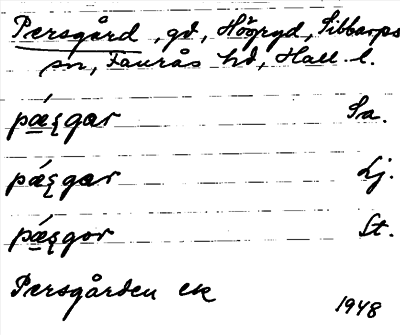 Persgård, gd, Högryd, Sibbarps
sn, Faurås hd, Hall. l.
pǽʂgær Sa.
pǽʂgær Lj.
pǽʂgor St.
Persgården ek
1948